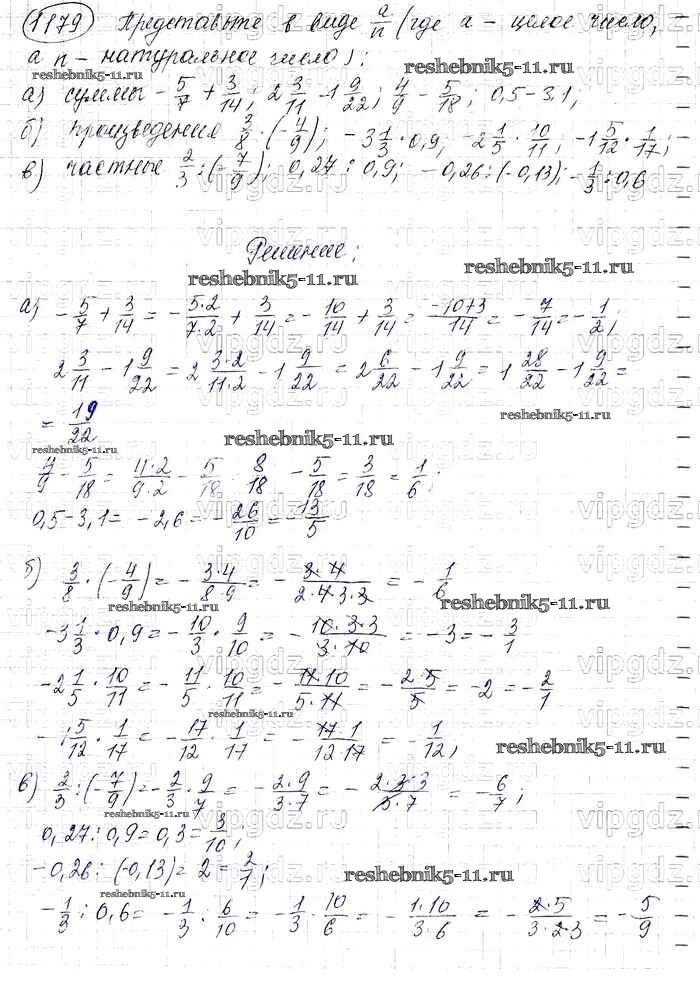 1179 Представьте в виде a/n (где a - целое число,
а n - натуральное число):
reshebnik5-11.ru
а) суммы -5/7 + 3/14; 2 3/11 - 1 9/22; 4/9 - 5/18; 0,5-3,1;
б) произведения 3/8 · (-4/9); -3 1/3 · 0,9; -2 1/5 · 10/11; -1 5/12 · 1/17;
в) частные 2/3 : (-7/9); 0,27 : 0,9; -0,26 : (-0,13); -1/3 : 0,6
vipgdz.ru
Решение:
reshebnik5-11.ru
reshebnik5-11.ru
а) -5/7 + 3/14 = -5·2/7·2 + 3/14 = -10/14 + 3/14 = -10+3/14 = -7/14 = -1/2;
2 3/11 - 1 9/22 = 2 3·2/11·2 - 1 9/22 = 2 6/22 - 1 9/22 = 1 28/22 - 1 9/22 =
= 19/22
reshebnik5-11.ru
reshebnik5-11.ru
reshebnik5-11.ru
4/9 - 5/18 = 4·2/9·2 - 5/18 8/18 - 5/18 = 3/18 = 1/6;
0,5-3,1 = -2,6 = -26/10 = -13/5
reshebnik5-11.ru
б) 3/8 · (-4/9) = -3·4/8·9 = -3·4/2·4·3·3 = -1/6
reshebnik5-11.ru
reshebnik5-11.ru
-3 1/3 · 0,9 = -10/3 · 9/10 = -10·3·3/3·10 = -3 = -3/1
-2 1/5 · 10/11 = -11/5 · 10/11 = -11·10/5·11 = -2·5/5 = -2 = -2/1
reshebnik5-11.ru
-1 5/12 · 1/17 = -17/12 · 1/17 = -17·1/12·17 = -1/12;
reshebnik5-11.ru
в) 2/3 : (-7/9) = -2/3 · 9/7 = -2·9/3·7 = -2·3·3/3·7 = -6/7;
reshebnik5-11.ru
0,27 : 0,9 = 0,3 = 3/10;
-0,26 : (-0,13) = 2 = 2/1;
reshebnik5-11.ru
reshebnik5-11.ru
-1/3 : 0,6 = -1/3 : 6/10 = -1/3 · 10/6 = -1·10/3·6 = -2·5/3·2·3 = -5/9